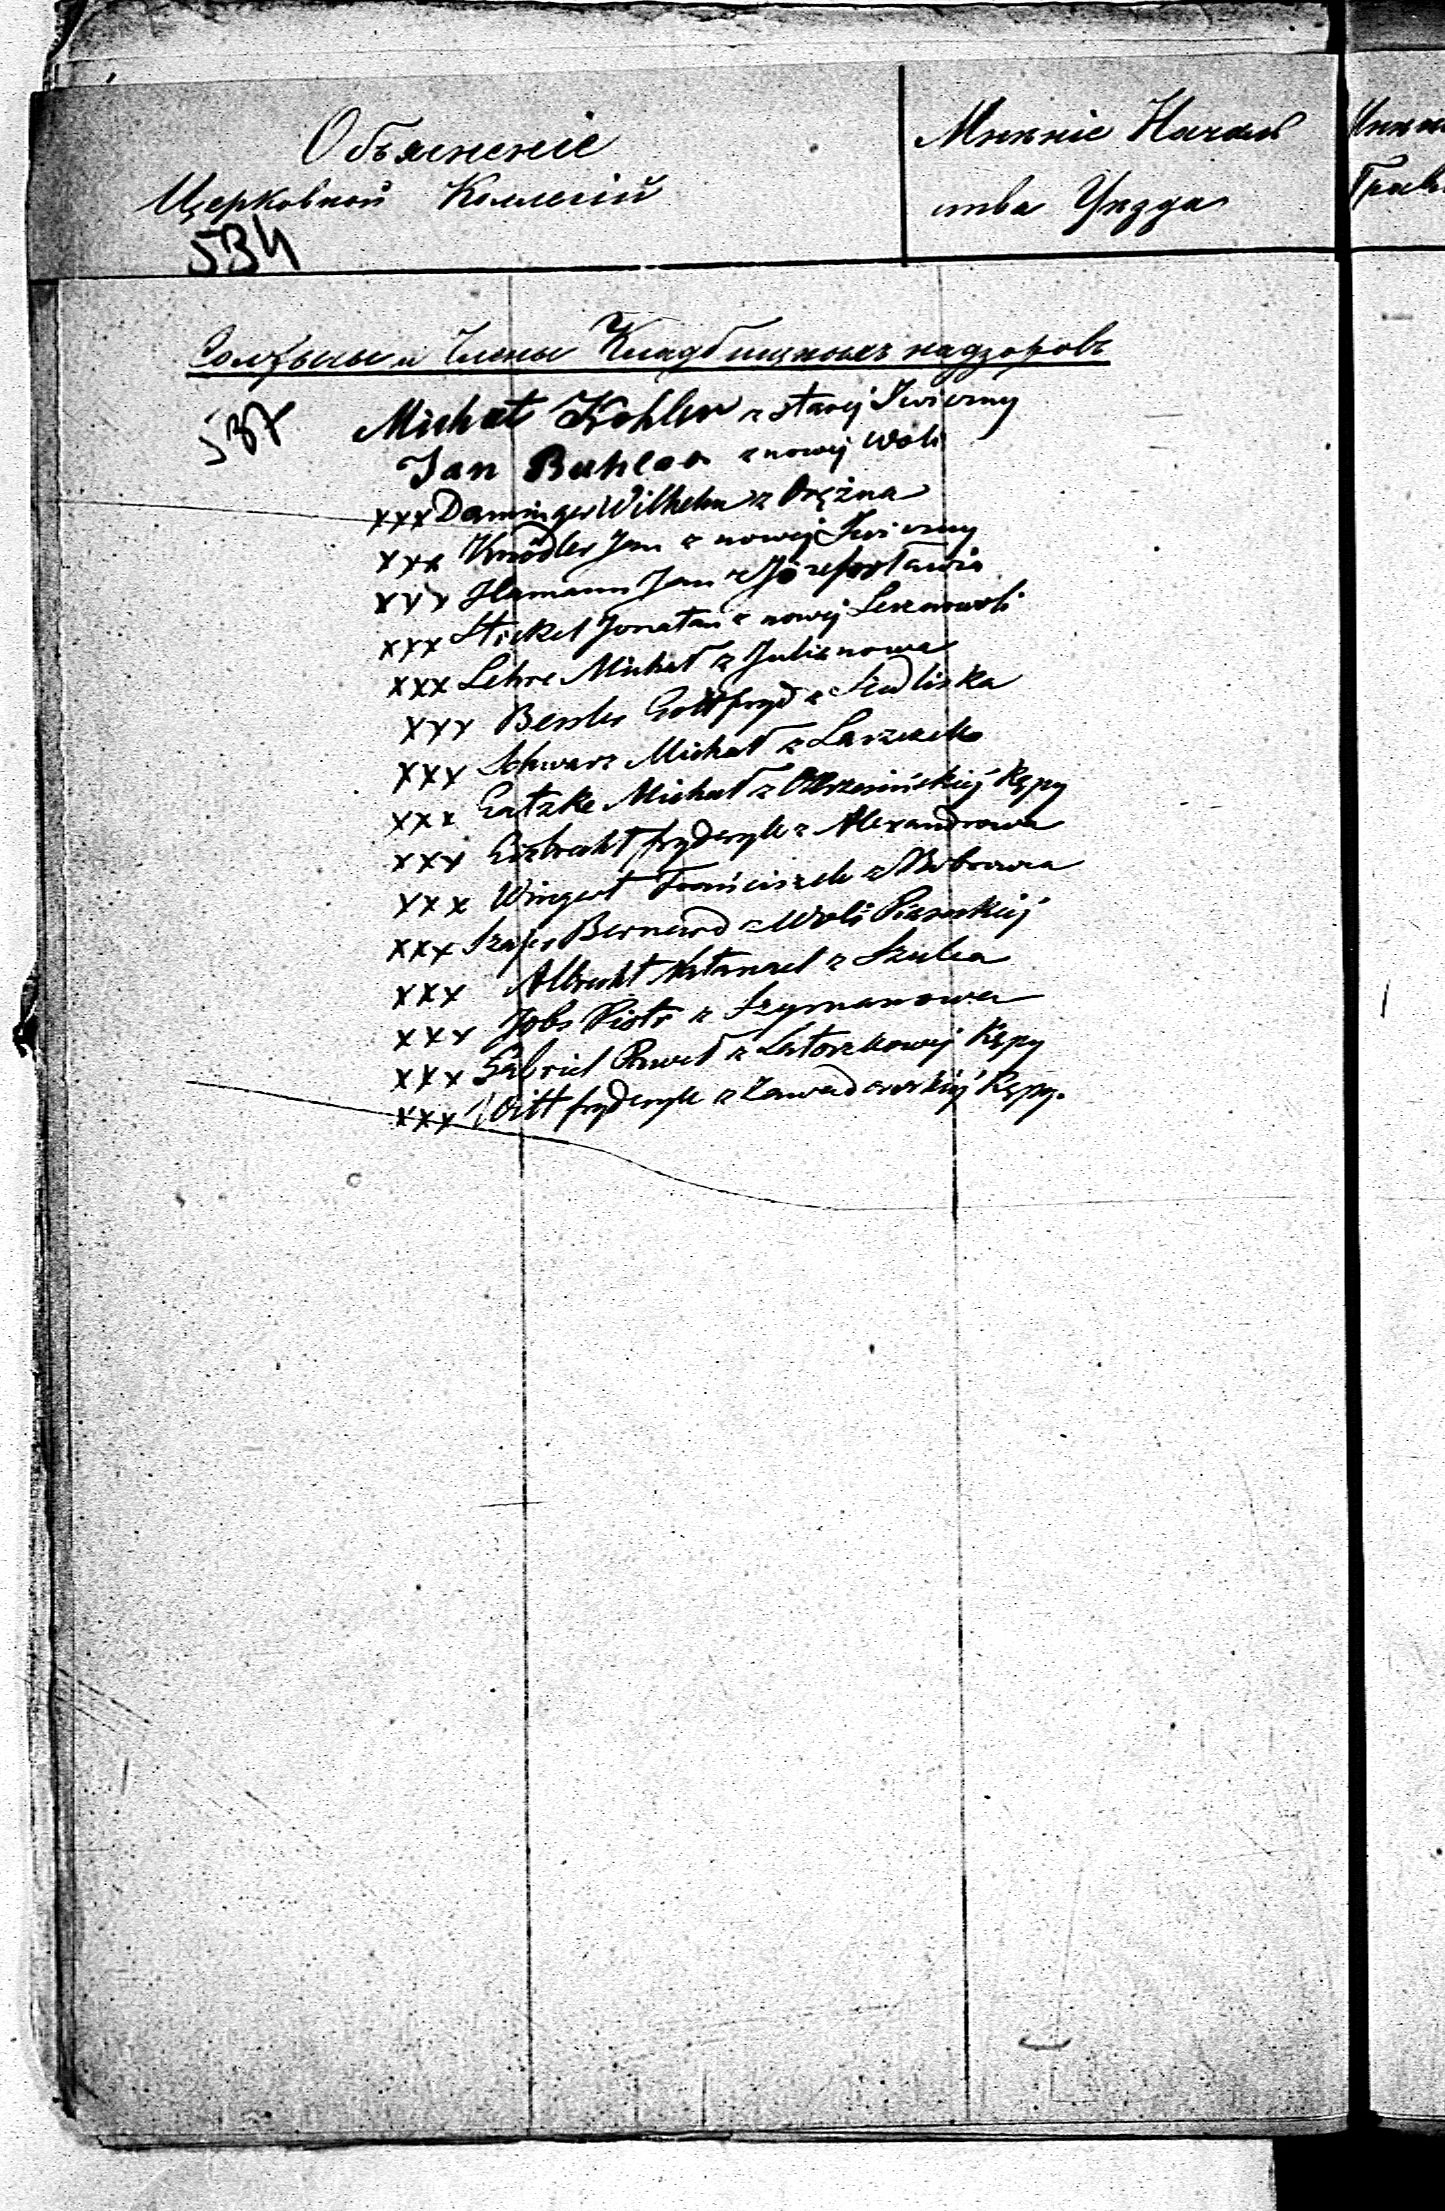 Объясненіе
Церковной Коллегій
534
Мнѣніе Началь
ства Уѣзда
Солтысы и Члены Кладбищныхъ надзоровъ
537
Michał Kohler z starej Iwiczny
Jan Buhler z nowej Woli
xxx Daminger Wilhelm z Orężna
xxx Knödler Jan z nowej Iwiczny
xxx Hamann Jan z Józefosławia
xxx Stickel Jonatan z nowej Lesznowoli
xxx Lehre Michał z Julianowa
xxx Bessler Gottfryd z Siedliska
xxx Schwarz Michał z Łarzecka
xxx Gatzke Michał z Obrzemińskiej Kępy
xxx Eisbrecht fryderyk z Alexandrowa
xxx Wingert Franciszek z Bobrowca
xxx Szafer Bernard z Woli Piaseckiej
xxx Albrecht Natanael z Szulca
xxx Jobs Piotr z Szymanowa
xxx Gabriel Paweł z Latoszkowej Kępy
xxx Witt fryderyk z Zawadowskiej Kępy.